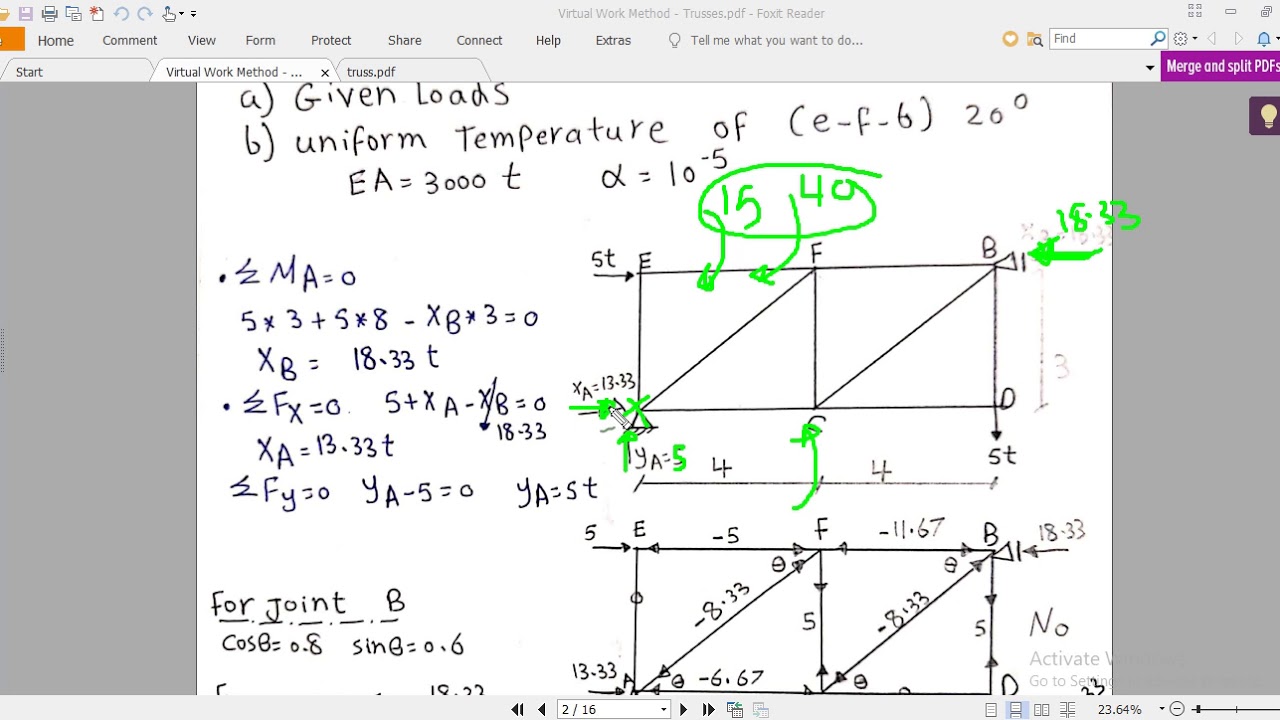 Virtual Work Method - Trusses.pdf - Foxit Reader
Home Comment View Form Protect Share Connect Help Extras Tell me what you want to do... Find
Start Virtual Work Method - ... × truss.pdf Merge and split PDFs
a) Given Loads
b) uniform Temperature of (e-f-b) 20°
EA = 3000 t α = 10⁻⁵
15 40
18.33
5t E F B
• Σ MA = 0
5*3 + 5*8 - XB*3 = 0
XB = 18.33 t
3
• ΣFX=0 5+XA-XB=0
18.33
XA=13.33
XA = 13.33t
C D
YA=5 4 4 5t
ΣFy=0 YA-5=0 YA=5t
5 E -5 F -11.67 B 18.33
θ θ
-8.33 5 -8.33 5 No
For joint B
cosθ=0.8 sinθ=0.6
13.33 A θ -6.67 θ D
18.33
Activate Windows
Go to Settings
2 / 16 23.64%